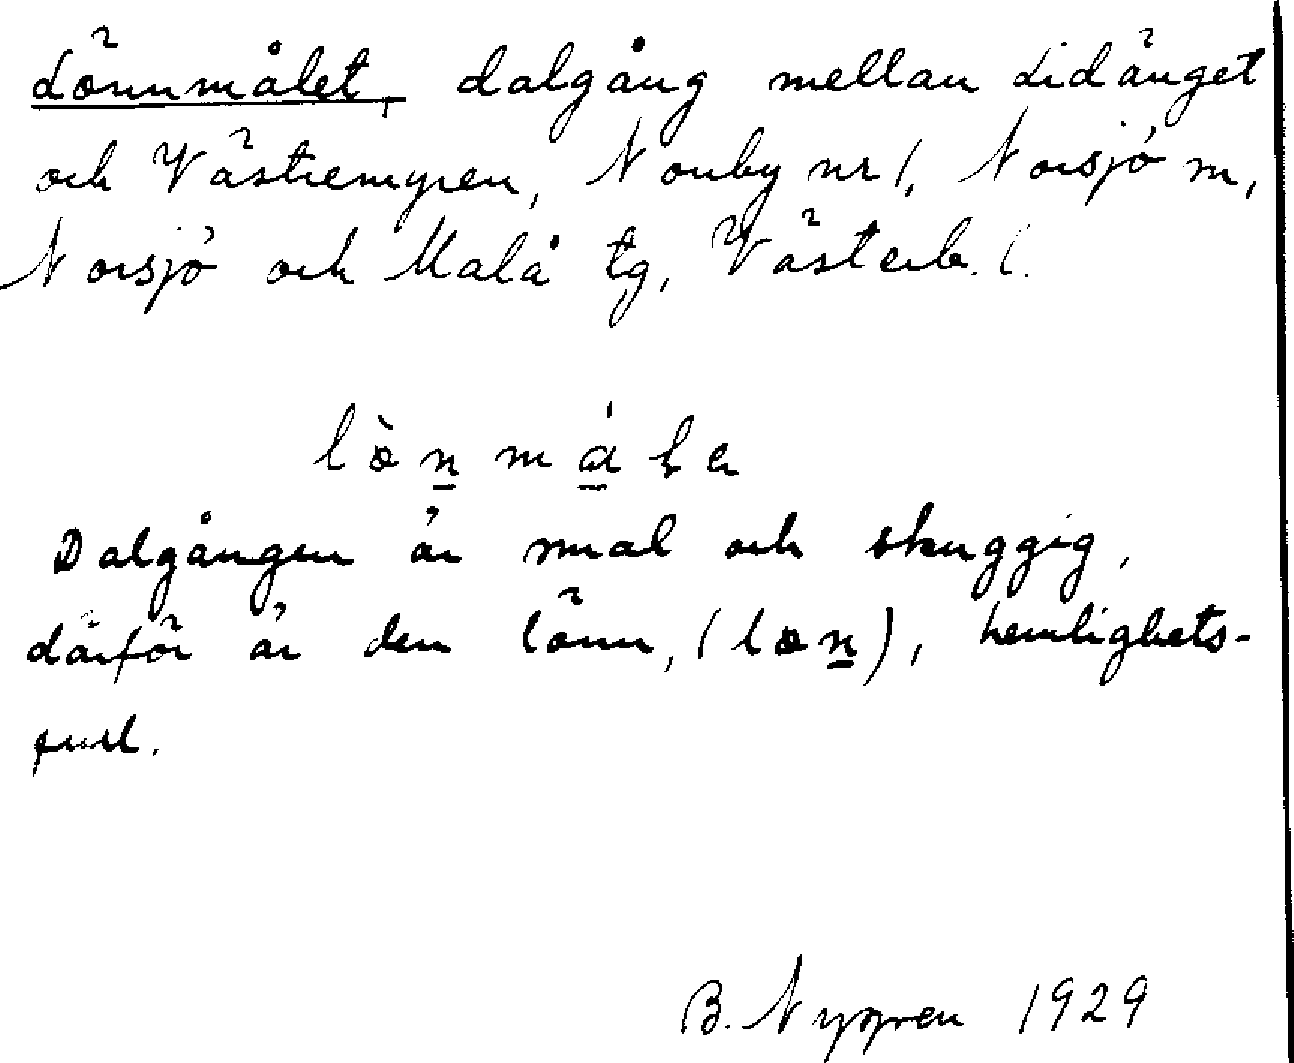 Lönnmålet, dalgång mellan Lidänget
och Västremyren, Norrby nr 1, Norsjö sn,
Norsjö och Malå tg, Västerb. l.
lœ̀n̲má̲ɭe
Dalgången är smal och skuggig,
därför är den lönn, (lœn̲), hemlighets-
full.
B. Nygren 1929